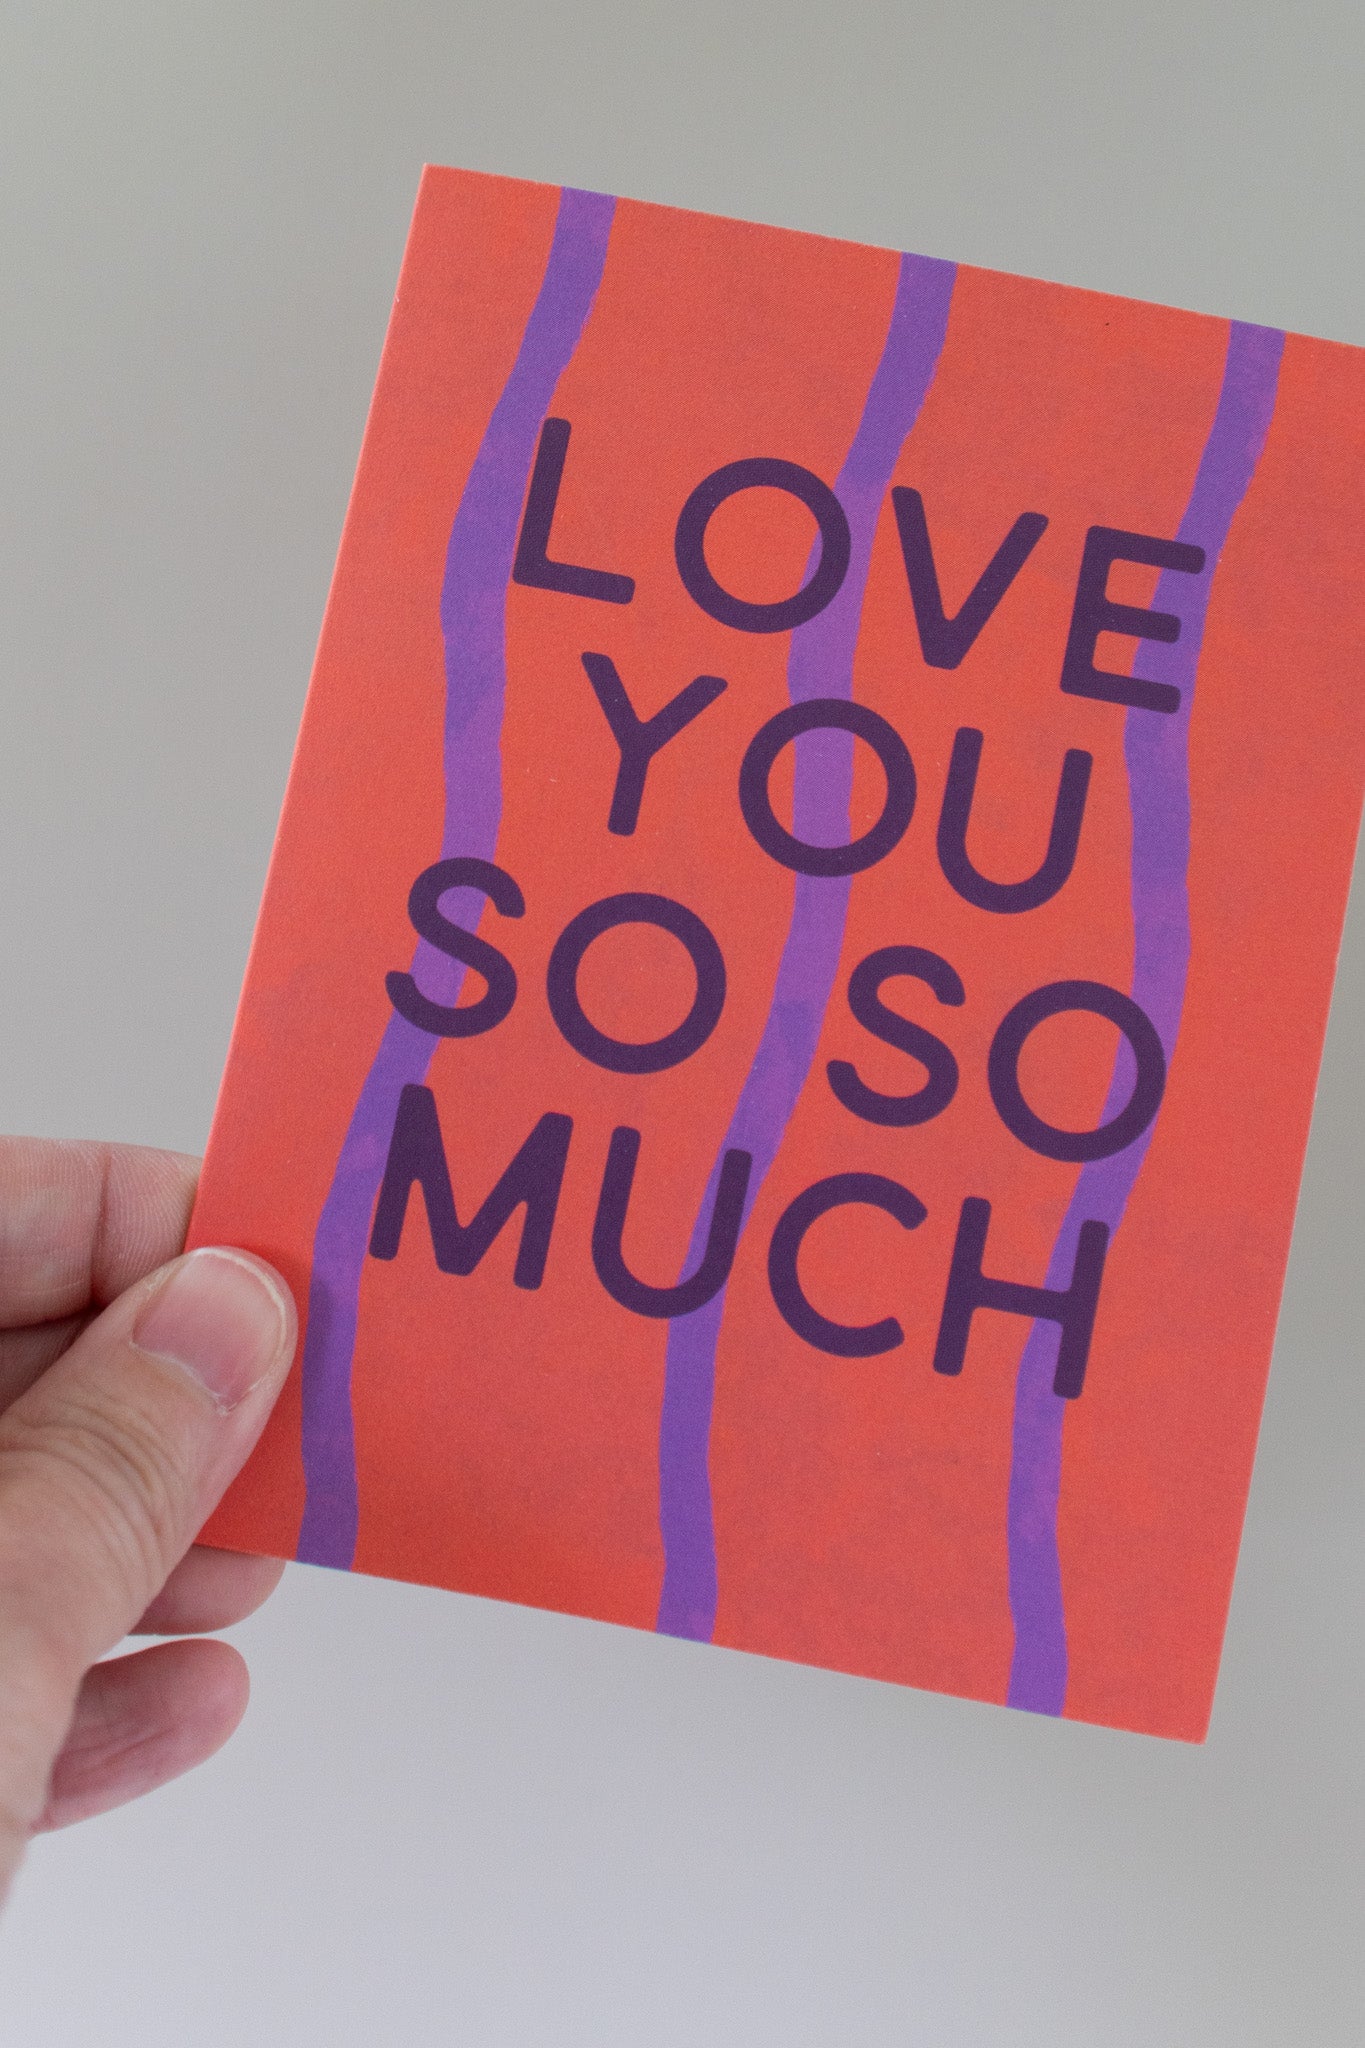 LOVE
YOU
SO SO
MUCH